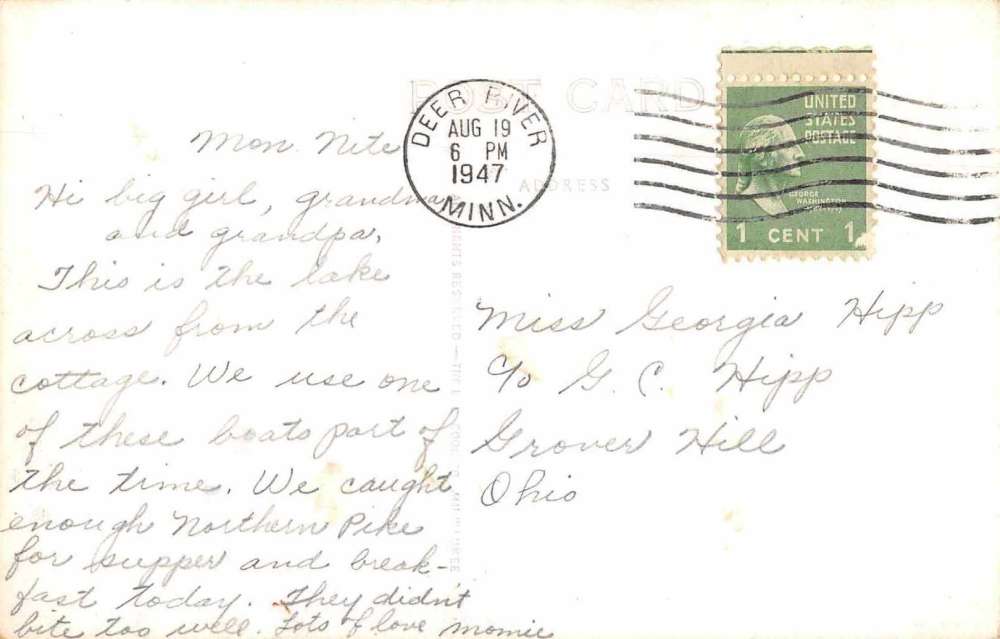 POST CARD
ADDRESS
DEER RIVER
AUG 19
6 PM
1947
MINN.
UNITED
STATES
POSTAGE
GEORGE
WASHINGTON
1 CENT 1
Mon. Nite
Hi big girl, grandma
and grandpa,
This is the lake
across from the
cottage. We use one
of these boats part of
the time. We caught
enough Northern Pike
for supper and break-
fast today. They didn't
bite too well. Lots of love Momie
Miss Georgia Hipp
c/o G. C. Hipp
Grover Hill
Ohio